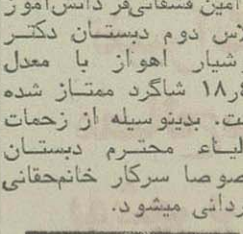 امین فشقائی‌فر دانش‌آموز
لاس دوم دبستان دکتر
شیار اهواز با معدل
ر۱۸ شاگرد ممتاز شده
ت. بدینوسیله از زحمات
لیاء محترم دبستان
صوصا سرکار خانمحقانی
ردانی میشود.